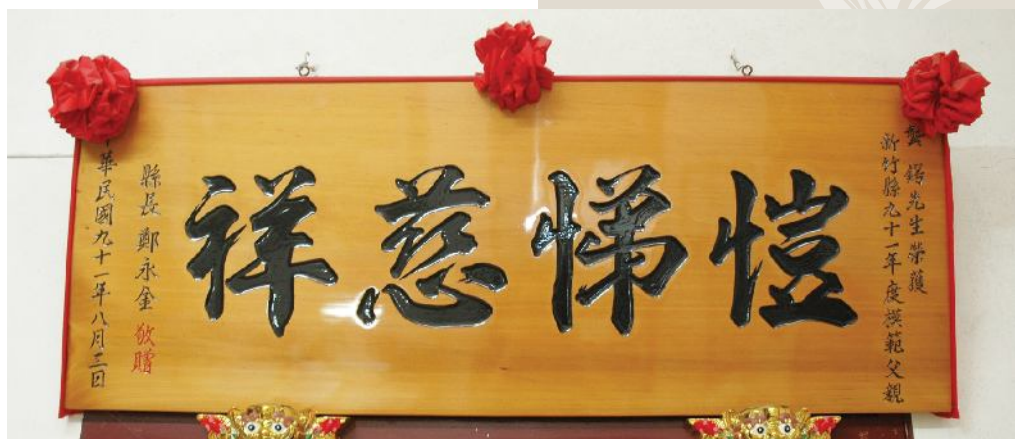 龔錫先生榮獲
新竹縣九十一年度模範父親
愷悌慈祥
縣長 鄭永金 敬贈
中華民國九十一年八月三日